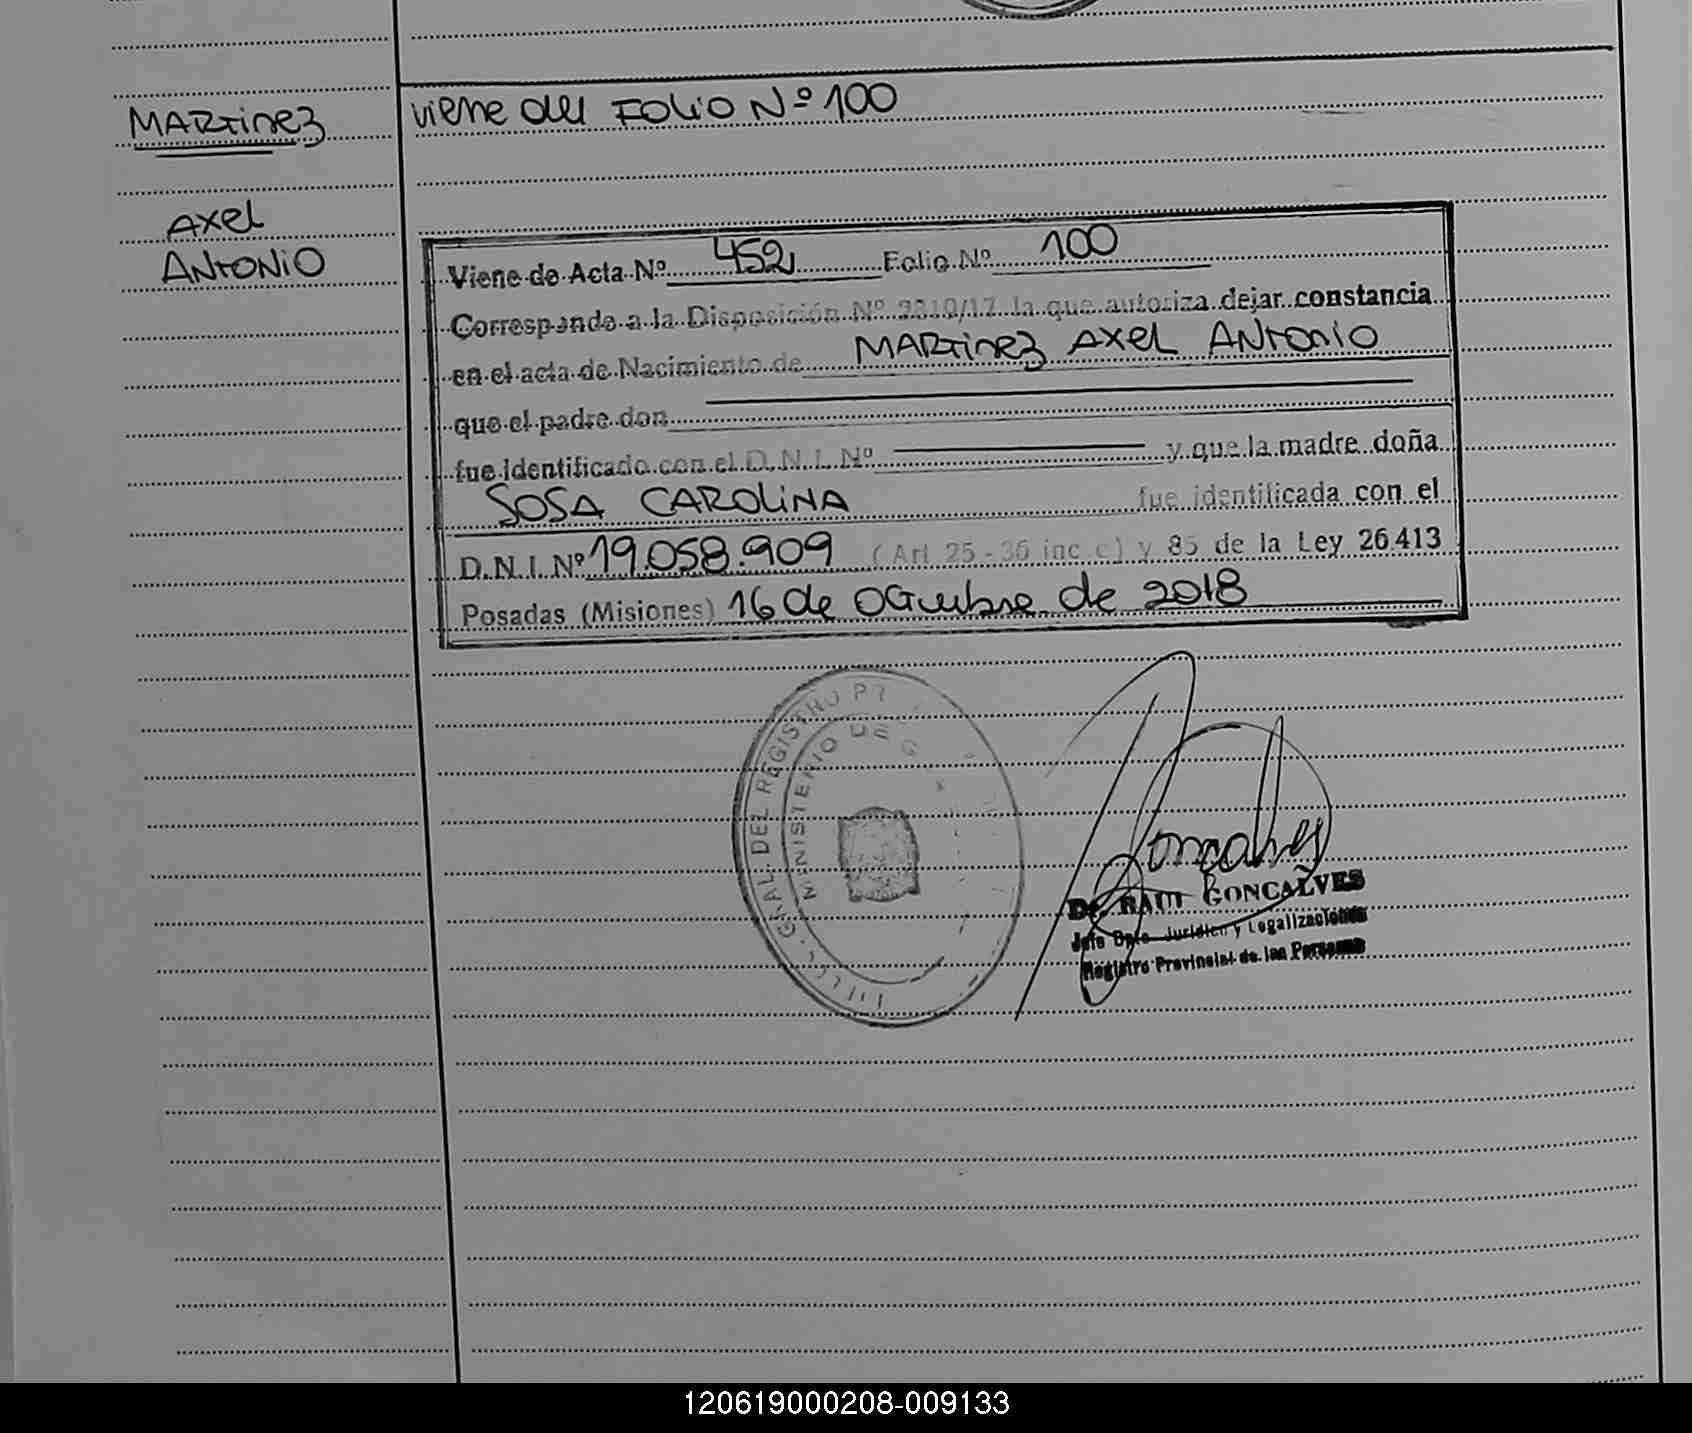 MARTINEZ
AXEL
ANTONIO
viene del FOLIO Nº 100
Viene de Acta Nº 452 Folio Nº 100
Corresponde a la Disposición Nº 2810/17 la que autoriza dejar constancia
en el acta de Nacimiento de MARTINEZ AXEL ANTONIO
que el padre don
fue identificado con el D.N.I. Nº y que la madre doña
SOSA CAROLINA fue identificada con el
D.N.I. Nº 19.058.909 (Art. 25 - 36 inc. c) y 85 de la Ley 26.413
Posadas (Misiones) 16 de octubre de 2018
GRAL. DEL REGISTRO
MINISTERIO DE G
Gonçalves
Dr. RAUL GONCALVES
Jefe Dpto. Jurídico y Legalizaciones
Registro Provincial de las Personas
120619000208-009133